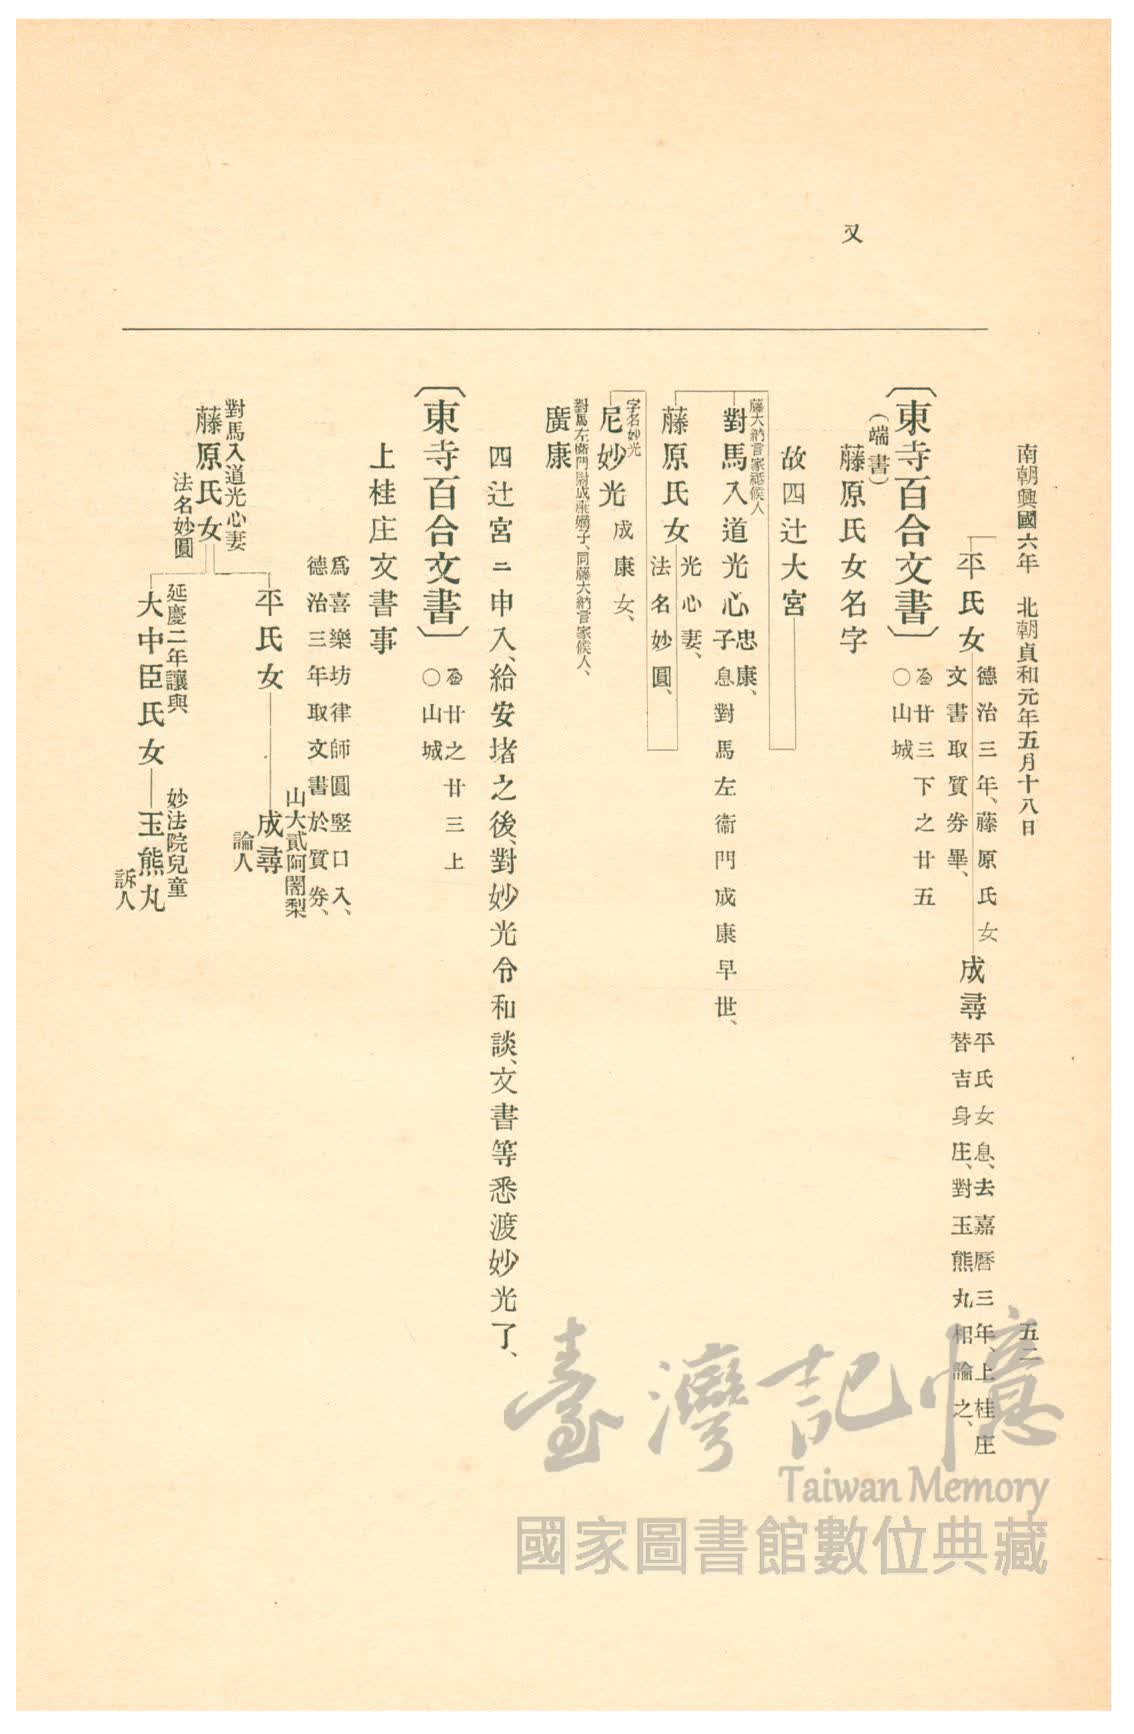 南朝興國六年　北朝貞和元年五月十八日
五二
又
平氏女
德治三年、藤原氏女
文書取質券畢、
成尋
平氏女息、去嘉曆三年、上桂庄
替吉身庄、對玉熊丸相論之、
〔東寺百合文書〕
廿三下之廿五
○山城
(端書)
藤原氏女名字
故四辻大宮
藤大納言家祗候人
對馬入道光心
忠康、
子息對馬左衞門成康早世、
藤原氏女
光心妻、
法名妙圓、
字名妙光
尼妙光
成康女、
對馬左衞門尉成康嫡子、同藤大納言家候人、
廣康
四辻宮ニ申入、給安堵之後、對妙光令和談、文書等悉渡妙光了、
〔東寺百合文書〕
廿之廿三上
○山城
上桂庄文書事
爲喜樂坊律師圓竪口入、
德治三年取文書於質券、
對馬入道光心妻
藤原氏女
法名妙圓
平氏女
山大貳阿闍梨
成尋
論人
延慶二年讓與
大中臣氏女
妙法院兒童
玉熊丸
訴人
臺灣記憶
Taiwan Memory
國家圖書館數位典藏